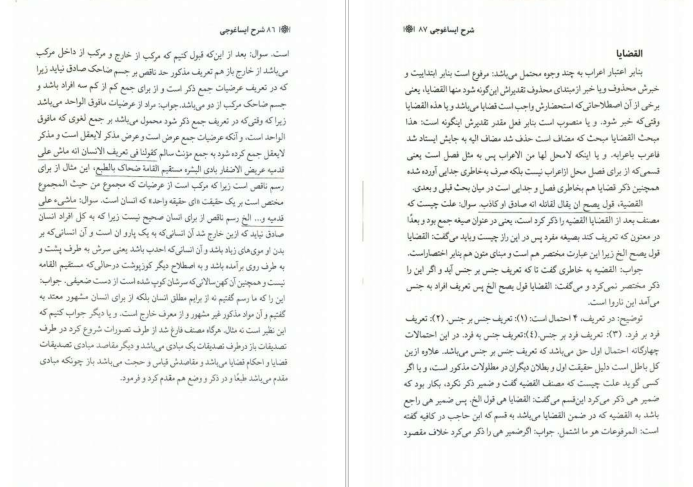 ۸۶ شرح ایساغوجی
است. سوال: بعد از این‌که قبول کنیم که مرکب از خارج و مرکب از داخل مرکب
می‌باشد از خارج باز هم تعریف مذکور حد ناقص بر جسم ضاحک صادق نیاید زیرا
که در تعریف عرضیات جمع ذکر است و از برای جمع کم از کم سه افراد باشد و
جسم ضاحک مرکب از دو می‌باشد. جواب: مراد از عرضیات مافوق الواحد می‌باشد
زیرا که وقتی‌که در تعریف جمع ذکر شود محمول می‌باشد بر جمع لغوی که مافوق
الواحد است. و آنکه عرضیات جمع عرض است و عرض مذکر لایعقل است و مذکر
لایعقل جمع کرده شود به جمع مؤنث سالم کقولنا فی تعریف الانسان انه ماش علی
قدمیه عریض الاضفار بادی البشره مستقیم القامة ضحاک بالطبع، این مثال از برای
رسم ناقص است زیرا که مرکب است از عرضیات که مجموع من حیث المجموع
مختص است بر یک حقیقت «ای حقیقه واحد» که انسان است. سوال: ماشیء علی
قدمیه و... الخ رسم ناقص از برای انسان صحیح نیست زیرا که به کل افراد انسان
صادق نیاید که ازین خارج شد آن انسانی‌که به یک پارو ان است و آن انسانی‌که بر
بدن او موی‌های زیاد باشد و آن انسانی‌که احدب باشد یعنی سرش به طرف پشت و
به طرف روی برآمده باشد و به اصطلاح دیگر کوزپوشت درحالی‌که مستقیم القامه
نیست و همچنین آن کهن‌سالانی‌که سرشان کوپ شده است از دست ضعیفی. جواب:
این را که ما رسم گفتیم نه از برایم مطلق انسان بلکه از برای انسان مشهور معتد به
گفتیم و آن مواد مذکور غیر مشهور و از معرف خارج است. و یا دیگر جواب کنیم که
این نظیر است نه مثال. هرگاه مصنف فارغ شد از طرف تصورات شروع کرد در طرف
تصدیقات باز درطرف تصدیقات یک مبادی می‌باشد و دیگر مقاصد. مبادی تصدیقات
قضایا و احکام قضایا می‌باشد و مقاصدش قیاس و حجت می‌باشد باز چونکه مبادی
مقدم می‌باشد طبعًا و در ذکر و وضع هم مقدم کرد و فرمود.
شرح ایساغوجی ۸۷
القضایا
بنابر اعتبار اعراب به چند وجوه محتمل می‌باشد: مرفوع است بنابر ابتدابیت و
خبرش محذوف ویا خبر ازمبتدای محذوف تقدیرش این‌گونه شود منها القضایا، یعنی
برخی از آن اصطلاحاتی‌که استحضارش واجب است قضایا می‌باشد و یا هذه القضایا
وقتی‌که خبر شود. و یا منصوب است بنابر فعل مقدر تقدیرش اینگونه است: هذا
مبحث القضایا مبحث که مضاف است حذف شد مضاف الیه به جایش ایستاد شد
فاعرب باعرابه. و یا اینکه لامحل لها من الاعراب پس به مثل فصل است یعنی
قسمی‌که از برای فصل محل ازاعراب نیست بلکه صرف به‌خاطری جدایی آورده شده
همچنین ذکر قضایا هم بخاطری فصل و جدایی است در میان بحث قبلی و بعدی.
القضیة، قول یصح ان یقال لقائله انه صادق او کاذب. سوال: علت چیست که
مصنف بعد از القضایا القضیه را ذکر کرد است، یعنی در عنوان صیغه جمع بود و بعدًا
در معنون که تعریف کند بصیغه مفرد پس در این راز چیست وباید می‌گفت: القضایا
قول یصح الخ زیرا این عبارت مختصر هم است و مبنای متون هم بنابر اختصاراست.
جواب: القضیه به خاطری گفت تا که تعریف جنس بر جنس آید و اگر این را
ذکر مختصر نمی‌کرد و می‌گفت: القضایا قول یصح الخ پس تعریف افراد به جنس
می‌آمد این ناروا است.
توضیح: در تعریف، ۴ احتمال است: (۱): تعریف جنس بر جنس. (۲): تعریف
فرد بر فرد. (۳): تعریف فرد بر جنس.(۴):تعریف جنس به فرد. در این احتمالات
چهارگانه احتمال اول حق می‌باشد که تعریف جنس بر جنس می‌باشد. علاوه ازین
کل باطل است دلیل حقیقت اول و بطلان دیگران در مطولات مذکور است، و یا اگر
کسی گوید علت چیست که مصنف القضیه گفت و ضمیر ذکر نکرد، بکار بود که
ضمیر هی ذکر می‌کرد این‌قسم می‌گفت: القضایا هی قول الخ. پس ضمیر هی راجع
باشد به القضیه که در ضمن القضایا می‌باشد به قسم که ابن حاجب در کافیه گفته
است: المرفوعات هو ما اشتمل. جواب: اگرضمیر هی را ذکر می‌کرد خلاف مقصود